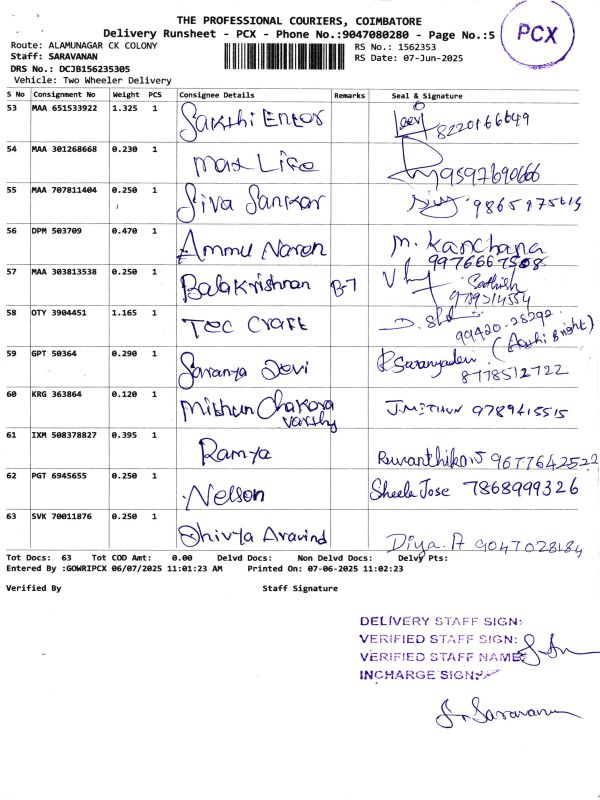 THE PROFESSIONAL COURIERS, COIMBATORE
Delivery Runsheet - PCX - Phone No.:9047080280 - Page No.:5
PCX
Route: ALAMUNAGAR CK COLONY RS No.: 1562353
Staff: SARAVANAN RS Date: 07-Jun-2025
DRS No.: DCJB156235305
Vehicle: Two Wheeler Delivery
S No Consignment No Weight PCS Consignee Details Remarks Seal & Signature
53 MAA 651533922 1.325 1 Sakthi Enter 8220166649
54 MAA 301268668 0.230 1 Max Life 9597690666
55 MAA 707811404 0.250 1 Siva Sankar
56 DPM 503709 0.470 1 Ammu Naren M. Kanchana
9976667508
57 MAA 303813538 0.250 1 Balakrishnan B-7 Sathish
9789314554
58 OTY 3904451 1.165 1 Tec Craft
99420-28292
59 GPT 50364 0.290 1 Saranya Devi R Saranyadevi (Aathi Bright)
8778512722
60 KRG 363864 0.120 1 Mithun Chakara varthy J.MITHUN 9789415515
61 IXM 508378827 0.395 1 Ramya 9677642522
62 PGT 6945655 0.250 1 Nelson Sheela Jose 7868999326
63 SVK 70011876 0.250 1 Dhivya Aravind Diya. A 9047028184
Tot Docs: 63 Tot COD Amt: 0.00 Delvd Docs: Non Delvd Docs: Delvy Pts:
Entered By :GOWRIPCX 06/07/2025 11:01:23 AM Printed On: 07-06-2025 11:02:23
Verified By Staff Signature
DELIVERY STAFF SIGN:
VERIFIED STAFF SIGN:
VERIFIED STAFF NAME:
INCHARGE SIGN:
S. Saravanan